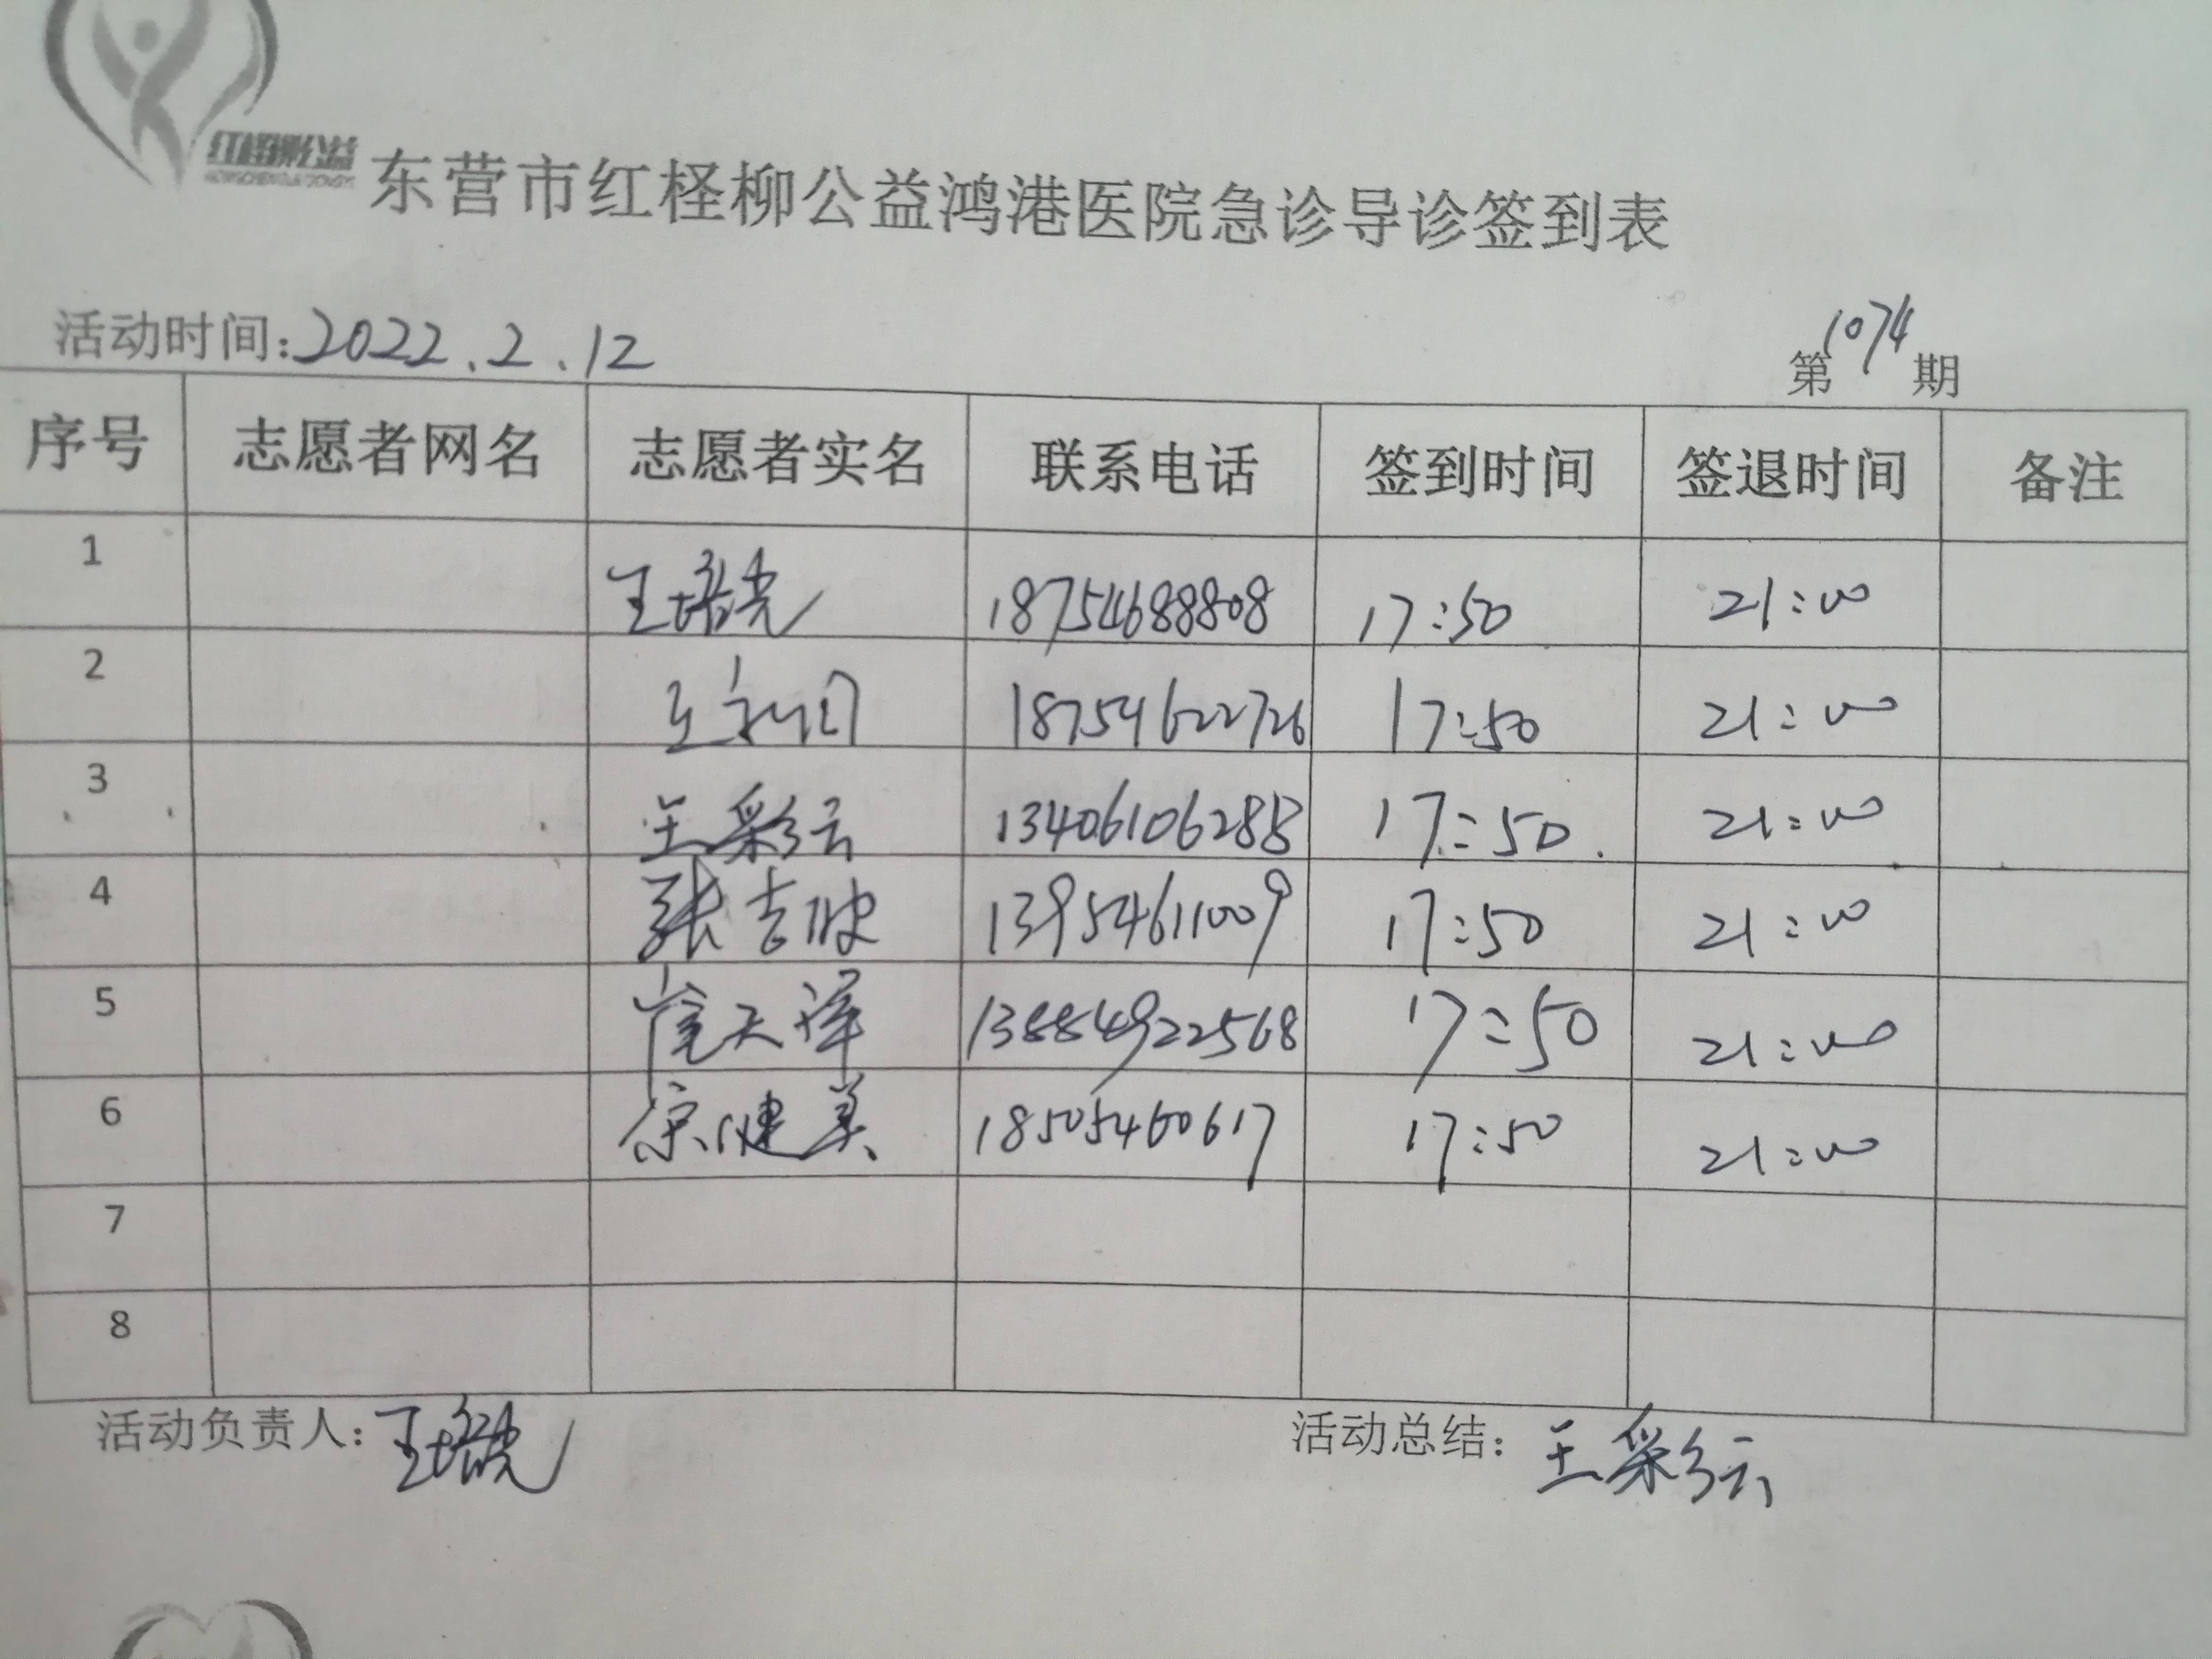 红柽柳公益
东营市红柽柳公益鸿港医院急诊导诊签到表
活动时间:2022.2.12 第1074期
序号 志愿者网名 志愿者实名 联系电话 签到时间 签退时间 备注
1 王培光 18754688808 17:50 21:00
2 王 18754622726 17:50 21:00
3 王彩云 13406106285 17:50 21:00
4 张吉 13954611009 17:50 21:00
5 崔天泽 13884922568 17:50 21:00
6 健美 18505460617 17:50 21:00
7
8
活动负责人:王培光 活动总结:王彩云